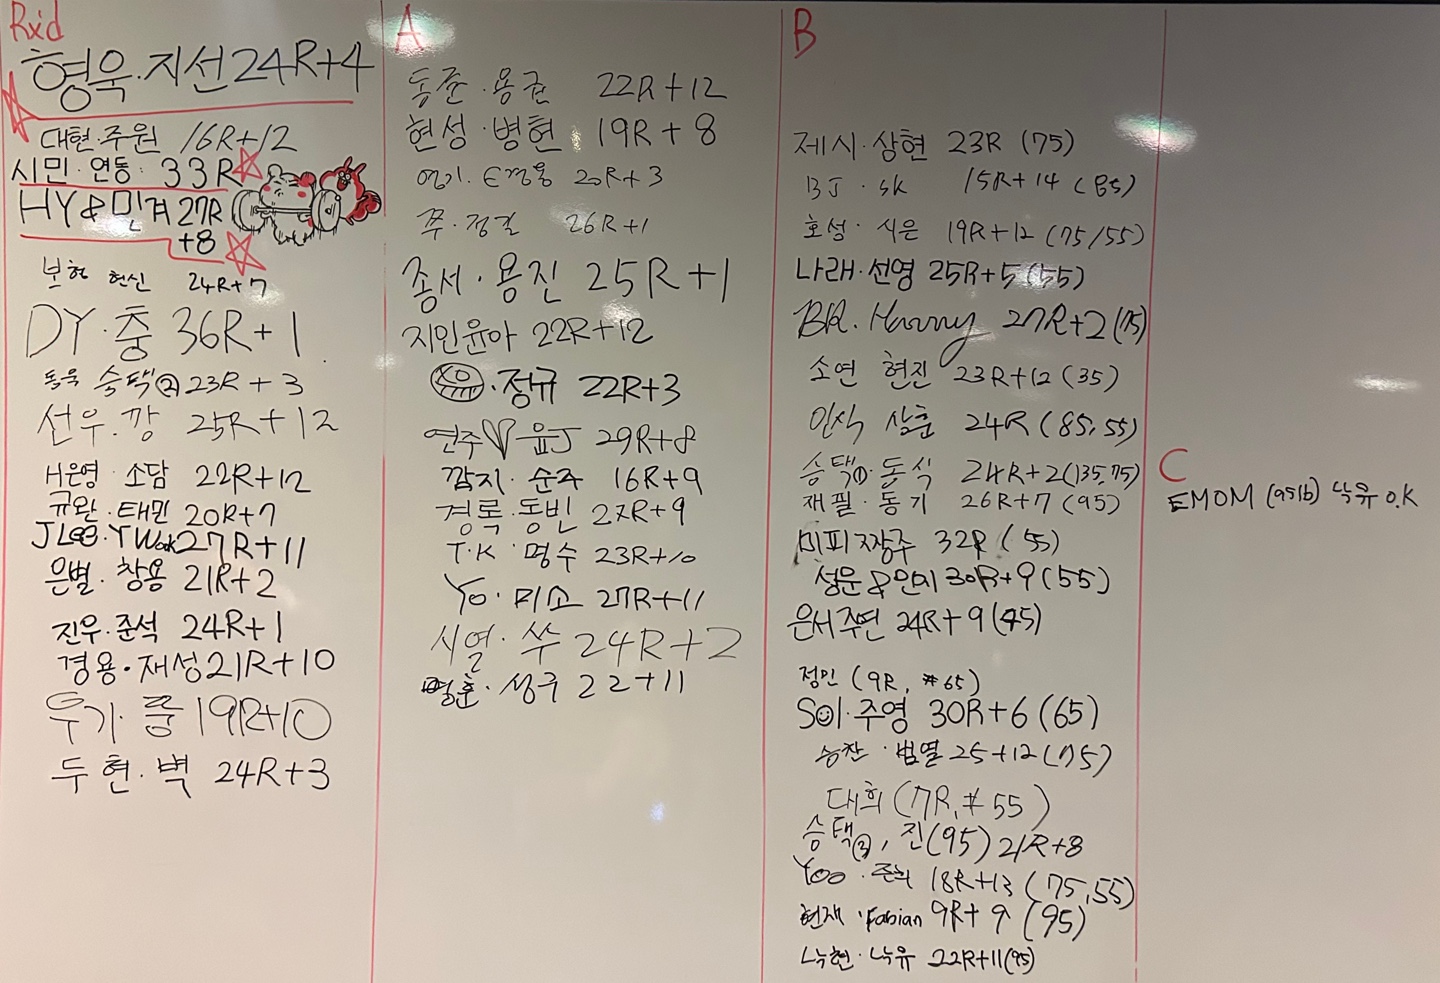 Rx'd
형욱·지선 24R+4
대현·주원 16R+12
시민·연동: 33R
HY&민겨 27R
+8
보형 현신 24R+7
DY·충 36R+1
동욱 승택② 23R+3
선우·깡 25R+12
H은영·소담 22R+12
규완·태민 20R+7
JLee·YWok 27R+11
은별·창용 21R+2
진우·준석 24R+1
경용·재성 21R+10
우기·쭝 19R+10
두현·벽 24R+3
A
동준·용균 22R+12
현성·병현 19R+8
20R+3
쭈·정길 26R+1
종서·용진 25R+1
지민윤아 22R+12
·정규 22R+3
연주♡윤J 29R+8
깜지·순주 16R+9
경록·동빈 27R+9
T.K·명수 23R+10
Yo·미소 27R+11
시열·쑤 24R+2
명훈·성구 22+11
B
제시·상현 23R (75)
BJ·SK 15R+14 (85)
호성·시은 19R+12 (75/55)
나래·선영 25R+5 (55)
BR. Harry 27R+2 (75)
소연 현진 23R+12 (35)
인식 상훈 24R (85, 55)
승택①·동식 24R+2 (135, 75)
재필·동기 26R+7 (95)
미피 짱주 32R (55)
성문&민지 30R+9 (55)
은서주연 24R+9 (45)
정민 (9R, #65)
SOl·주영 30R+6 (65)
승찬·범열 25+12 (75)
대희 (7R, #55)
승택③, 진(95) 21R+8
Yoo·준희 18R+13 (75, 55)
현재·Fabian 9R+9 (95)
낙현·낙유 22R+11 (95)
C
EMOM (95lb) 낙유 O.K